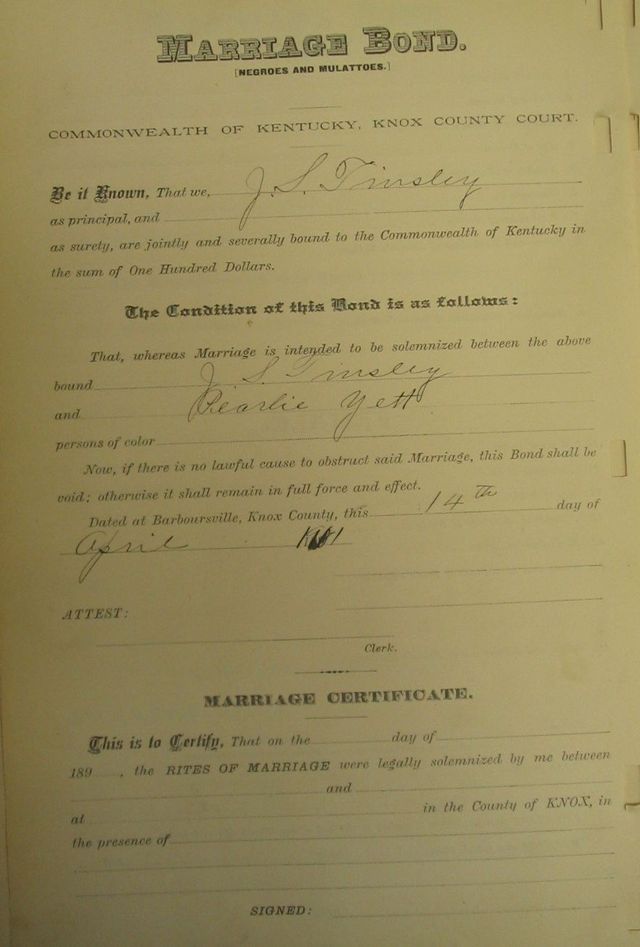 MARRIAGE BOND.
[NEGROES AND MULATTOES.]
COMMONWEALTH OF KENTUCKY, KNOX COUNTY COURT.
Be it Known, That we, J. S. Tinsley
as principal, and
as surety, are jointly and severally bound to the Commonwealth of Kentucky in
the sum of One Hundred Dollars.
The Condition of this Bond is as follows:
That, whereas Marriage is intended to be solemnized between the above
bound J. S. Tinsley
and Pearlie Yett
persons of color
Now, if there is no lawful cause to obstruct said Marriage, this Bond shall be
void; otherwise it shall remain in full force and effect.
Dated at Barboursville, Knox County, this 14th day of
April
ATTEST:
Clerk.
MARRIAGE CERTIFICATE.
This is to Certify, That on the day of
189 , the RITES OF MARRIAGE were legally solemnized by me between
and
at in the County of KNOX, in
the presence of
SIGNED: